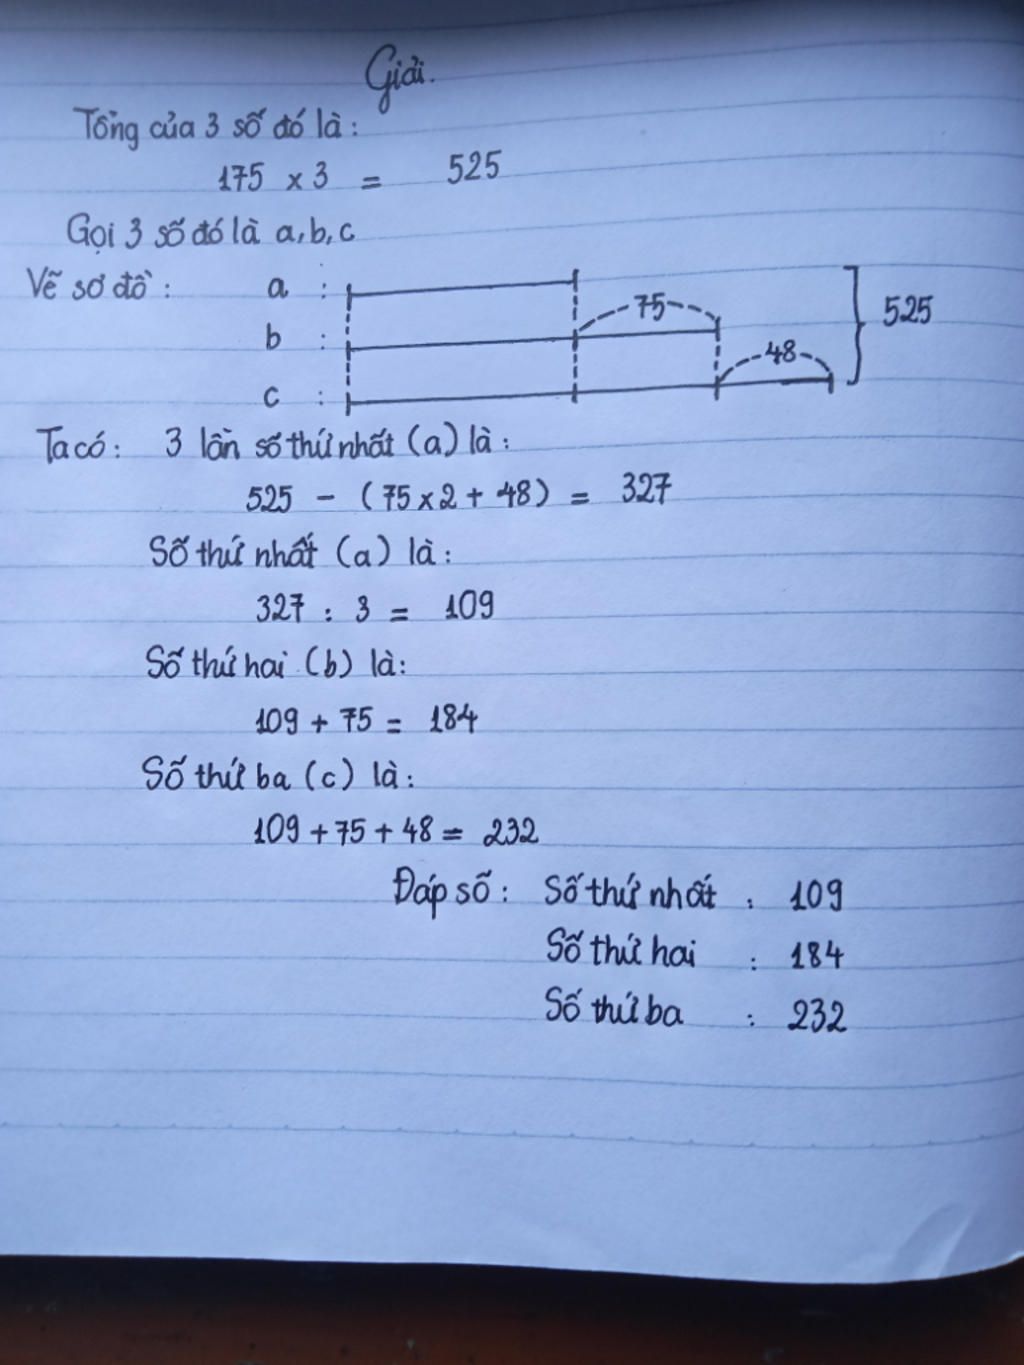 Giải.
Tổng của 3 số đó là:
175 x 3 = 525
Gọi 3 số đó là a, b, c
Vẽ sơ đồ: a :
75
525
b :
48
c :
Ta có: 3 lần số thứ nhất (a) là:
525 - (75 x 2 + 48) = 327
Số thứ nhất (a) là:
327 : 3 = 109
Số thứ hai (b) là:
109 + 75 = 184
Số thứ ba (c) là:
109 + 75 + 48 = 232
Đáp số: Số thứ nhất : 109
Số thứ hai : 184
Số thứ ba : 232